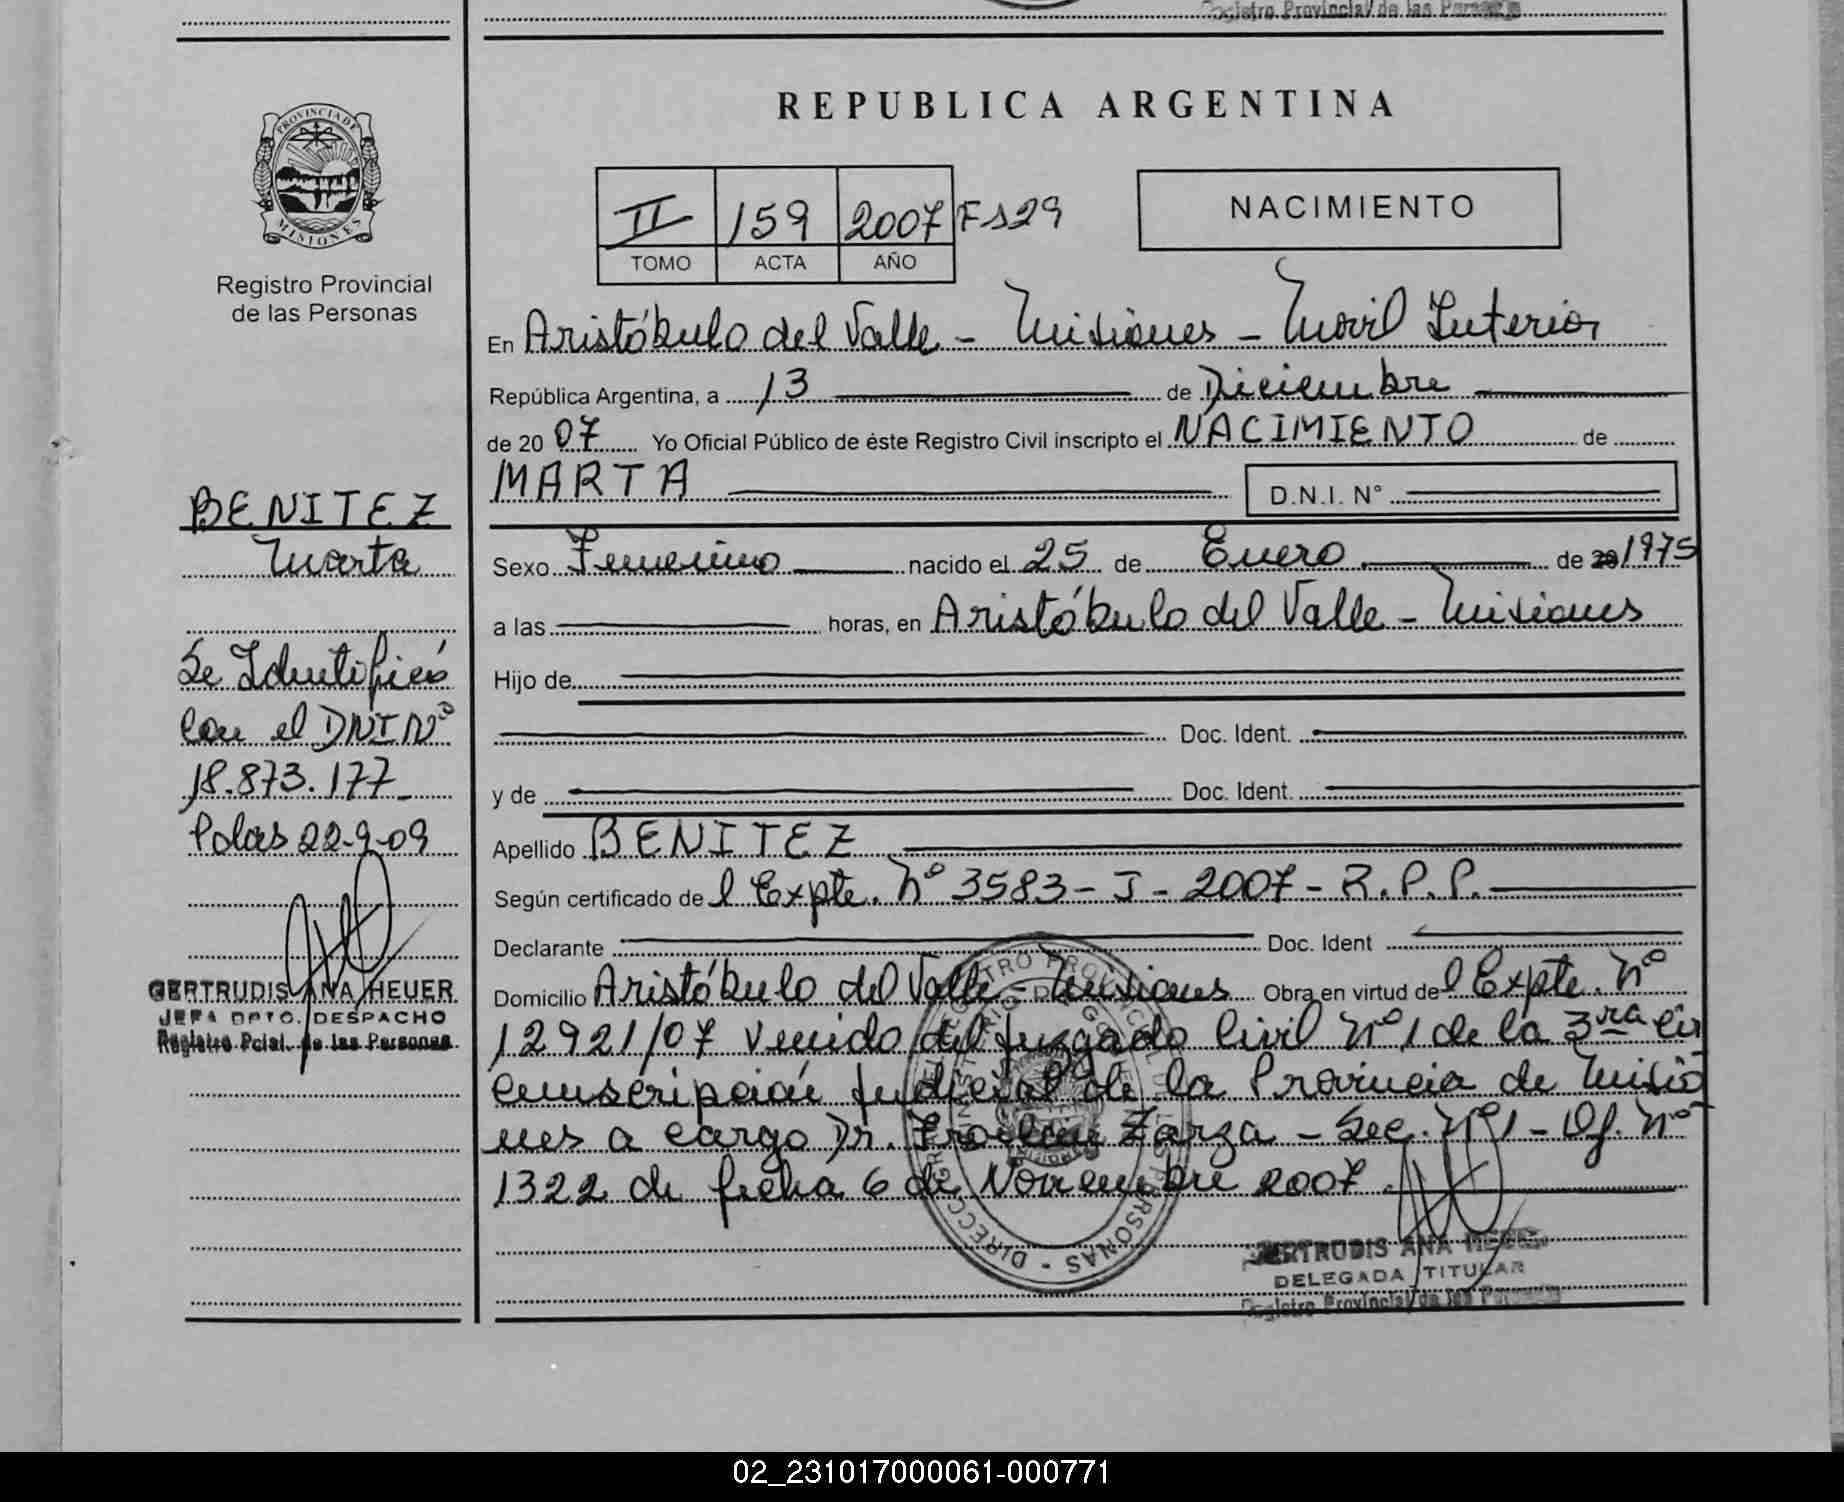 Registro Provincial de las Personas
REPUBLICA ARGENTINA
PROVINCIA DE
MISIONES
Registro Provincial
de las Personas
II 159 2007 Fs 29
TOMO ACTA AÑO
NACIMIENTO
En Aristóbulo del Valle - Misiones - Movil Interior
República Argentina, a 13 de Diciembre
de 20 07 Yo Oficial Público de éste Registro Civil inscripto el NACIMIENTO de
MARTA D.N.I. N°
Sexo Femenino nacido el 25 de Enero de 20 1975
a las horas, en Aristóbulo del Valle - Misiones
Hijo de
Doc. Ident.
y de Doc. Ident.
Apellido BENITEZ
Según certificado de l Expte. Nº 3583 - J - 2007 - R.P.P.
Declarante Doc. Ident
Domicilio Aristóbulo del Valle - Misiones Obra en virtud de l Expte. Nº
12921/07 venido del Juzgado Civil Nº 1 de la 3ra Cir
cunscripción Judicial de la Provincia de Misio
nes a cargo Dr. Froilan Zarza - Sec. Nº 1 - Of. Nº
1322 de fecha 6 de Noviembre 2007.
GERTRUDIS ANA HEUER
DELEGADA TITULAR
Registro Provincial de las Personas
BENITEZ
Marta
Se Identificó
con el DNI Nº
18.873.177
Pdas 22-9-09
GERTRUDIS ANA HEUER
JEFA DPTO. DESPACHO
Registro Pcial. de las Personas
02_231017000061-000771